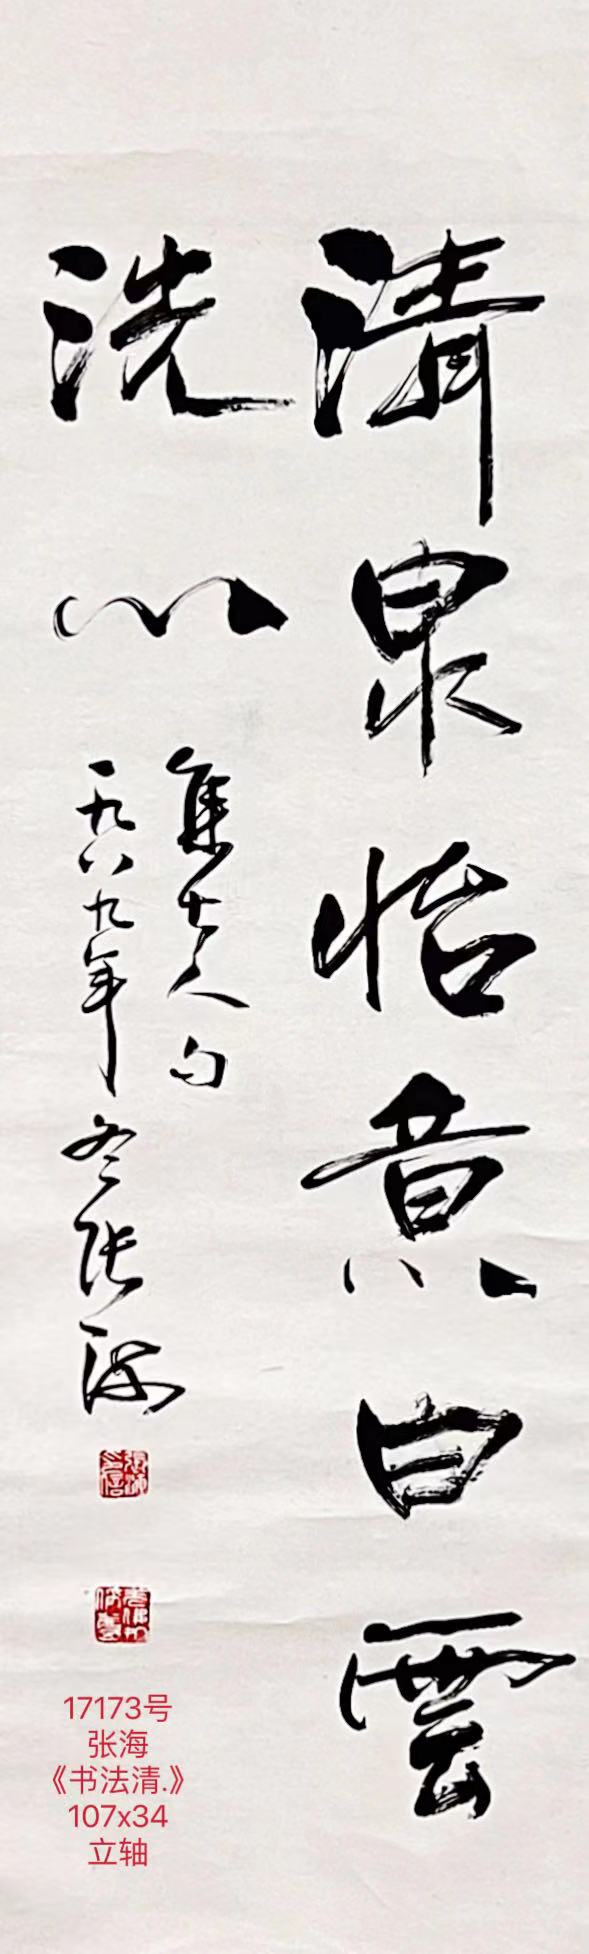 清泉怡意白雲
洗心
集古人句
一九八九年冬张海
17173号
张海
《书法清.》
107x34
立轴